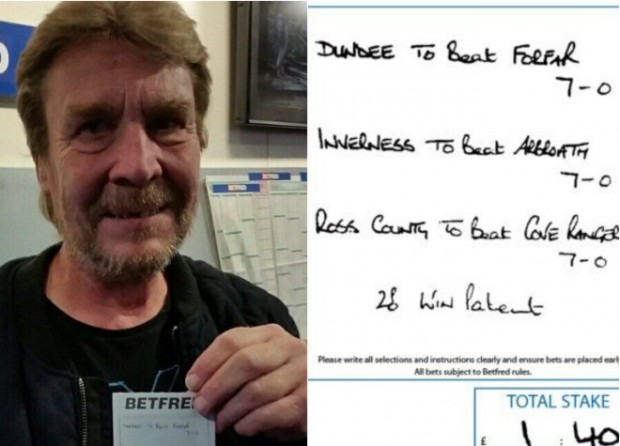 BETFRE
DUNDEE TO Beat FORFAR
7-0
DUNDEE TO Beat FORFAR
7-0
INVERNESS TO Beat ARBROATH
7-0
ROSS COUNTY TO Beat COVE RANGER
7-0
WIN Patent
Please write all selections and instructions clearly and ensure bets are placed early
All bets subject to Betfred rules.
TOTAL STAKE
£ 1 : 40